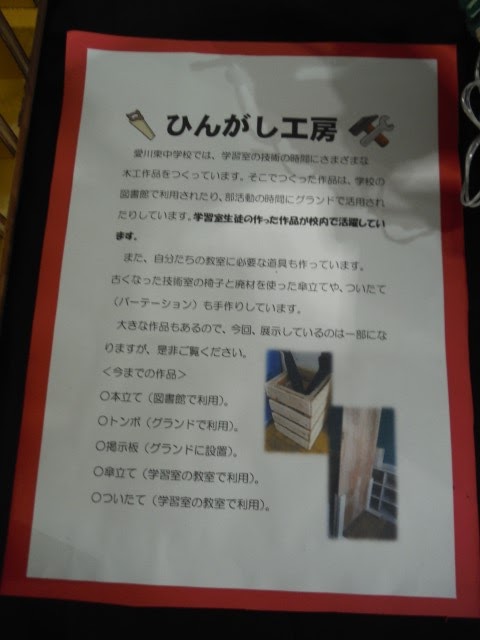 ひんがし工房
愛川東中学校では、学習室の技術の時間にさまざまな
木工作品をつくっています。そこでつくった作品は、学校の
図書館で利用されたり、部活動の時間にグランドで活用され
たりしています。学習室生徒の作った作品が校内で活躍してい
ます。
また、自分たちの教室に必要な道具も作っています。
古くなった技術室の椅子と廃材を使った傘立てや、ついたて
（パーテーション）も手作りしています。
大きな作品もあるので、今回、展示しているのは一部にな
りますが、是非ご覧ください。
＜今までの作品＞
〇本立て（図書館で利用）。
〇トンボ（グランドで利用）。
〇掲示板（グランドに設置）。
〇傘立て（学習室の教室で利用）。
〇ついたて（学習室の教室で利用）。